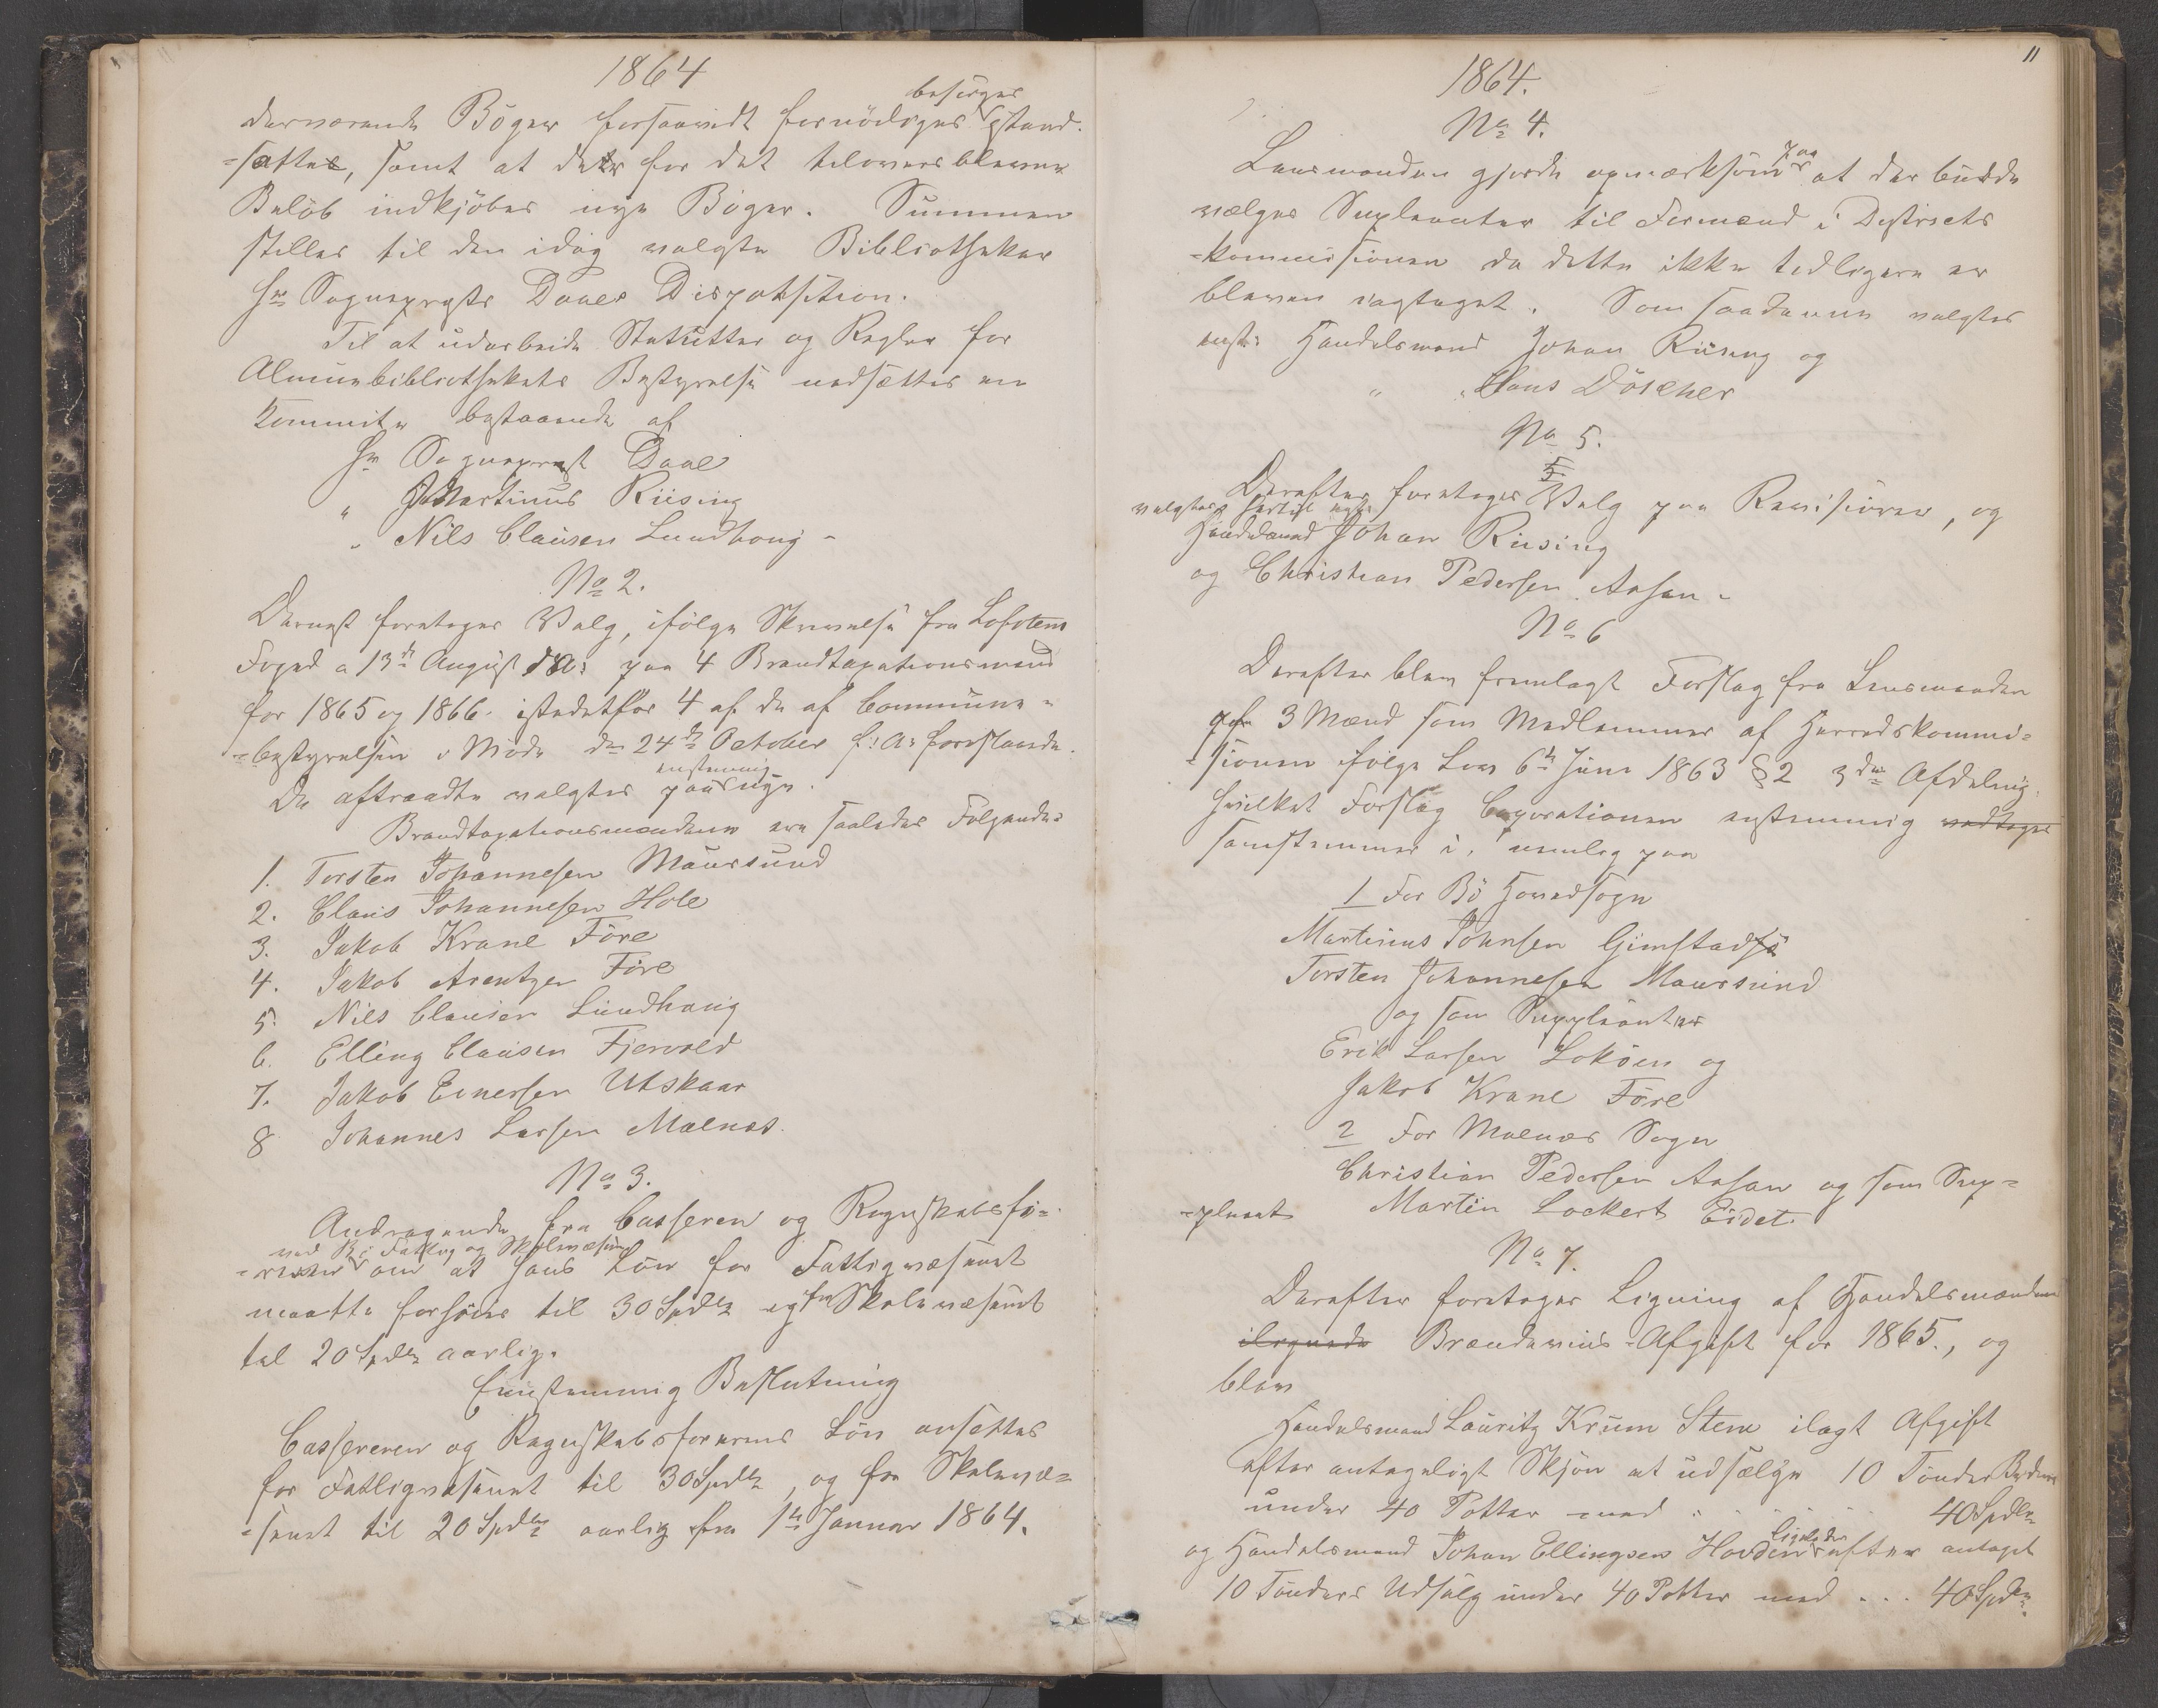 1864
derværende Böger forsaavidt fornödiges besörges istand-
-sattes, samt at der for det tilovers blevne
Belöb indkjöbes nye Böger. Summen
stilles til den idag valgte Bibliothekar
Hr Sognepræsts Daaes Dispotsition.
Til at udarbeide Statutter og Regler for
Almuebibliothekets Bestyrelse nedsættes en
Kommite bestaaende af
Hr Sognepræst Daae
" Martinus Riising
" Nils Clausen Lundhoug -
No 2.
Dernæst foretoges Valg, ifölge Skrivelse fra Lofotens
Foged a 13de August d: A: paa 4 Brandtaxationsmænd
for 1865 og 1866. istedetfor 4 af de af Commune-
=bestyrelsen i Möde den 24de October f: A: foreslaaede.
De aftraadte valgtes enstemmig paany.
Brandtaxationsmændene ere saaledes Fölgende:
1. Torsten Johannesen Maursund
2. Claus Johannesen Hole
3. Jakob Krane Före
4. Jakob Arentzen Före
5. Nils Clausen Lundhaug
6. Elling Clausen Fjervold
7. Jakob Einersen Utskaar
8 Johannes Larsen Malnes.
No 3.
Andragende fra Casseren og Regnskabsfö-
-reren ved Bö Fattig og Skolevæsen om at hans Lön for Fattigvæsenet
maatte forhöies til 30 Spdlr og for Skolevæsenet
til 20 Spdlr aarlig.
Eenstemmig Beslutning
Cassereren og Regnskabsförerens Lön ansættes
for Fattigvæsenet til 30 Spdlr, og for Skolevæ-
-senet til 20 Spdlr aarlig fra 1ste Januar 1864.
11
1864.
No 4.
Lensmanden gjorde opmærksom paa at der burde
vælges Suplenter til Formænd i Distrikts
-kommissionen da dette ikke tidligere er
bleven iagtaget. Som saadanne valgtes
enst: Handelsmand Johan Riising og
" Claus Döscher
No 5.
Derefter foretoges Valg paa Revisorer, og
valgtes hertil enst:
Handelsmand Johan Riising
og Christian Pedersen Aasan -
No 6
Derefter blev fremlagt Forslag fra Lensmanden
3 Mænd som Medlemmer af Herredskommi-
-sionen ifölge Lov 6te Juni 1863 § 2 3die Afdeling,
hvilket Forslag Corporationen enstemmig vedtoges
samstemmer i, nemlig paa
1 For Bö Hovedsogn
Martinus Johnsen Gimstadsö
Torsten Johannesen Maursund
og som Suppleanter
Erik Larsen Loköen og
Jakob Krane Före
2 For Malnes Sogn
Christian Pedersen Aasan og som Sup-
-pleant Martin Lockert Eidet.
No 7.
Derefter foretoges Ligning af Handelsmændenes
ilignede Brændeviins-Afgift for 1865., og
blev
Handelsmand Lauritz Krum Stene ilagt Afgift
efter antageligt Skjön at udsælge 10 Tönder
under 40 Potter med . . . . . 40 Spdlr
og Handelsmand Johan Ellingsen Hovden Ligeledes efter antaget
10 Tönders Udsalg under 40 Potter med . . . 40 Spdlr.